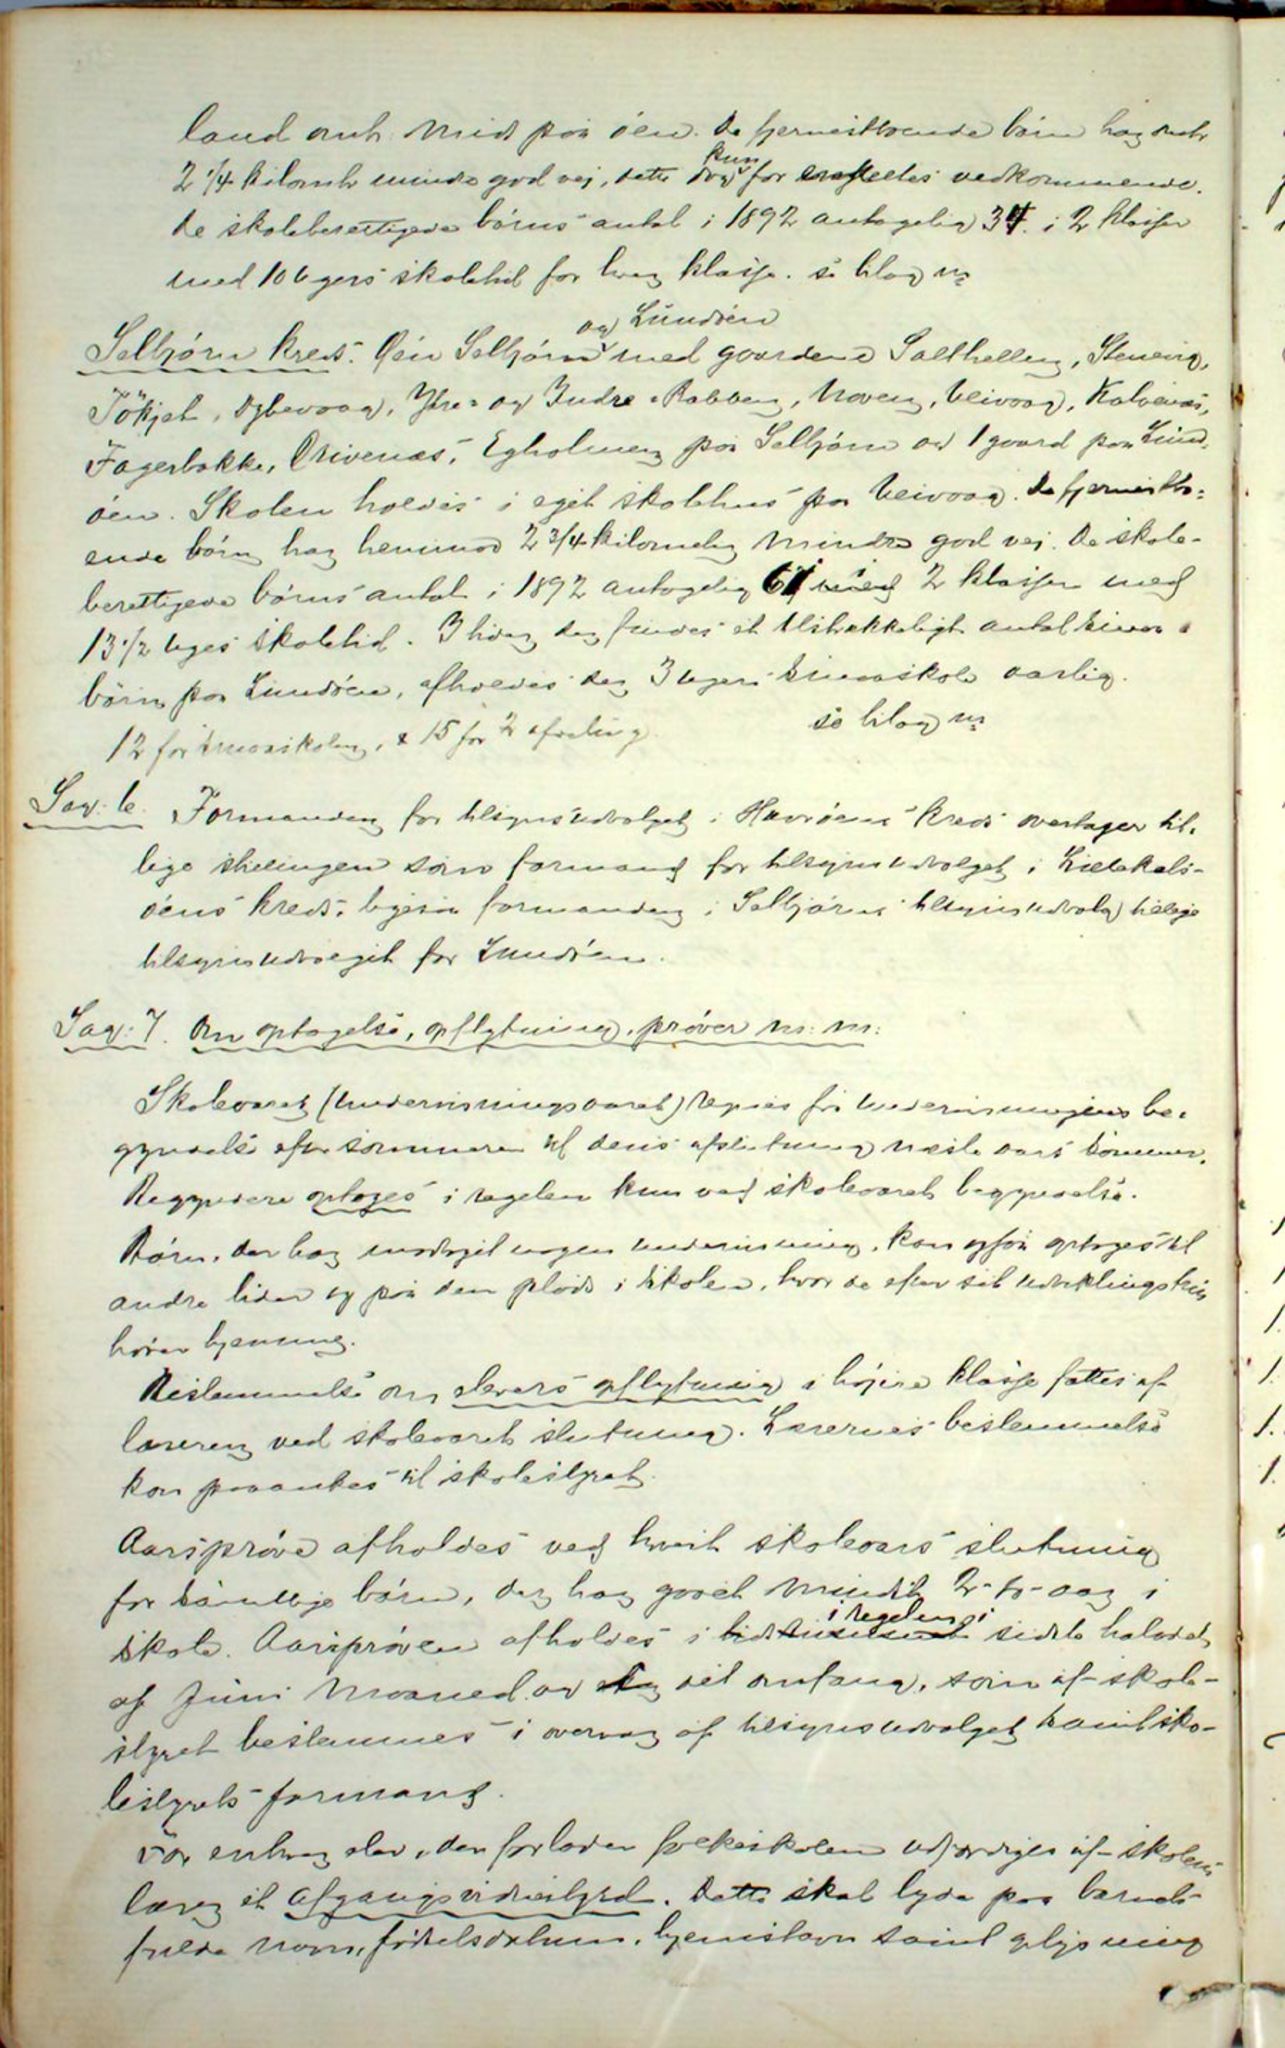 land omtr. midt paa øen. De fjernestboende børn har omtr.
2 1/4 kilomtr. mindre god vej, dette dog kun for enkeltes vedkommende.
De skoleberettigede børns antal i 1892 antagelig 34. i 2 klasser
med 10 ugers skoletid for hver klasse. se bilag nr
Selbjørn Kreds. Øen Selbjørn og Lundøen med gaardene Salthellen, Stenevig,
Tökjeh, Ygbevaag, Ytre- og Indre-Rabben, Moven, Veivaag, Kalvenæs,
Fagerbakke, Drivenæs, Egholmen paa Selbjørn og 1 gaard paa Lund-
øen. Skolen holdes i eget skolehus paa Veivaag. De fjernestbo-
ende børn har henimod 2 3/4 kilometer mindre god vej. De skole-
berettigede børns antal i 1892 antagelig 61 i 2 klasser med
13 1/2 uges skoletid. I tider der findes et tilstrækkeligt antal smaa-
børn paa Lundøen, afholdes der 3 ugers smaaskole aarlig.
12 for smaaskolen, & 15 for 2 afdeling. se bilag nr
Sag: 6. Formanden for tilsynsudvalget i Havrøens Kreds overtager til-
lige stillingen som formand for tilsynsudvalget i Lillekals-
øens Kreds, ligesaa formanden i Selbjørns tilsynsudvalg tillige
tilsynsudvalget for Lundøen.
Sag: 7. Om optagelse, opflytning, prøver m: m:
Skoleaaret (undervisningsaaret) regnes fra undervisningens be-
gyndelse efter sommeren til dens afslutning næste aars sommer.
Begyndere optages i regelen kun ved skoleaarets begyndelse.
Børn, der har modtaget nogen undervisning, kan ogsaa optages til
andre tider og paa den plads i skolen, hvor de efter sit udviklingstrin
hører hjemme.
Bestemmelse om elevers opflytning i højere klasse fattes af
læreren ved skoleaarets slutning. Lærernes bestemmelse
kan paaankes til skolestyret.
Aarsprøve afholdes ved hvert skoleaars slutning
for samtlige børn, der har gaaet mindst 2-to-aar i
skole. Aarsprøven afholdes i regelen i sidste halvdel
af Juni maaned og i det omfang, som af skole-
styret bestemmes i overvær af tilsynsudvalget samt sko-
lestyrets formand.
For enhver elev, der forlader folkeskolen udfærdiges af skolens
lærer et afgangsvidnesbyrd. Dette skal lyde paa barnets
fulde navn, fødselsdatum, hjemstavn samt oplysning